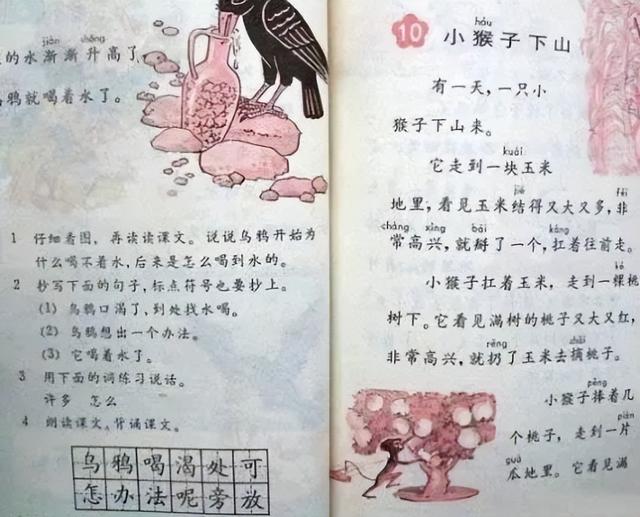 jiàn shēng
的水渐渐升高了
鸦就喝着水了。
1 仔细看图,再读读课文。说说乌鸦开始为
什么喝不着水,后来是怎么喝到水的。
2 抄写下面的句子,标点符号也要抄上。
(1) 乌鸦口渴了,到处找水喝。
(2) 乌鸦想出一个办法。
(3) 它喝着水了。
3 用下面的词练习说话。
许多 怎么
4 朗读课文,背诵课文。
乌鸦喝渴处可
怎办法呢旁放
hóu
10 小猴子下山
有一天,一只小
猴子下山来。
kuài
它走到一块玉米
jiē fēi
地里,看见玉米结得又大又多,非
cháng xìng bāi káng
常高兴,就掰了一个,扛着往前走。
kē
小猴子扛着玉米,走到一棵桃
树下。它看见满树的桃子又大又红,
rēng zhāi
非常高兴,就扔了玉米去摘桃子。
pěng
小猴子捧着几
piàn
个桃子,走到一片
guā
瓜地里。它看见满